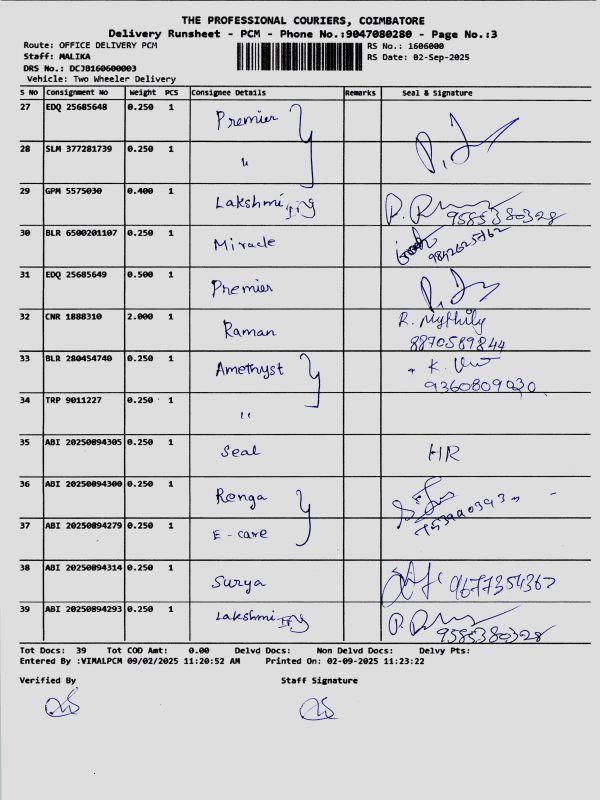 THE PROFESSIONAL COURIERS, COIMBATORE
Delivery Runsheet - PCM - Phone No.:9047080280 - Page No.:3
Route: OFFICE DELIVERY PCM RS No.: 1606000
Staff: MALIKA RS Date: 02-Sep-2025
DRS No.: DCJB160600003
Vehicle: Two Wheeler Delivery
S No Consignment No Weight PCS Consignee Details Remarks Seal & Signature
27 EDQ 25685648 0.250 1 Premier
28 SLM 377281739 0.250 1 "
29 GPM 5575030 0.400 1 Lakshmi 9585380328
30 BLR 6500201107 0.250 1 Miracle 9842625762
31 EDQ 25685649 0.500 1 Premier
32 CNR 1888310 2.000 1 Raman R. Mythily
8870589844
33 BLR 280454740 0.250 1 Amethyst K.
9360809030
34 TRP 9011227 0.250 1 "
35 ABI 20250894305 0.250 1 Seal HR
36 ABI 20250894300 0.250 1 Renga
37 ABI 20250894279 0.250 1 E-care
38 ABI 20250894314 0.250 1 Surya 9677354367
39 ABI 20250894293 0.250 1 Lakshmi 9585380328
Tot Docs: 39 Tot COD Amt: 0.00 Delvd Docs: Non Delvd Docs: Delvy Pts:
Entered By :VIMALPCM 09/02/2025 11:20:52 AM Printed On: 02-09-2025 11:23:22
Verified By Staff Signature